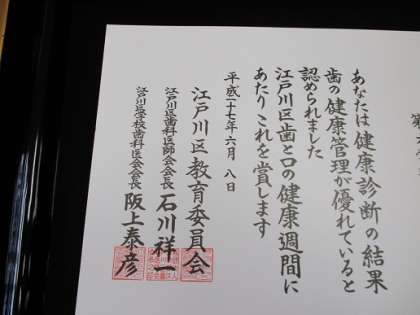 あなたは健康診断の結果
歯の健康管理が優れていると
認められました
江戸川区歯と口の健康週間に
あたりこれを賞します
平成二十七年六月八日
江戸川区教育委員会
江戸川区歯科医師会会長 石川祥一
江戸川区学校歯科医会会長 阪上泰彦